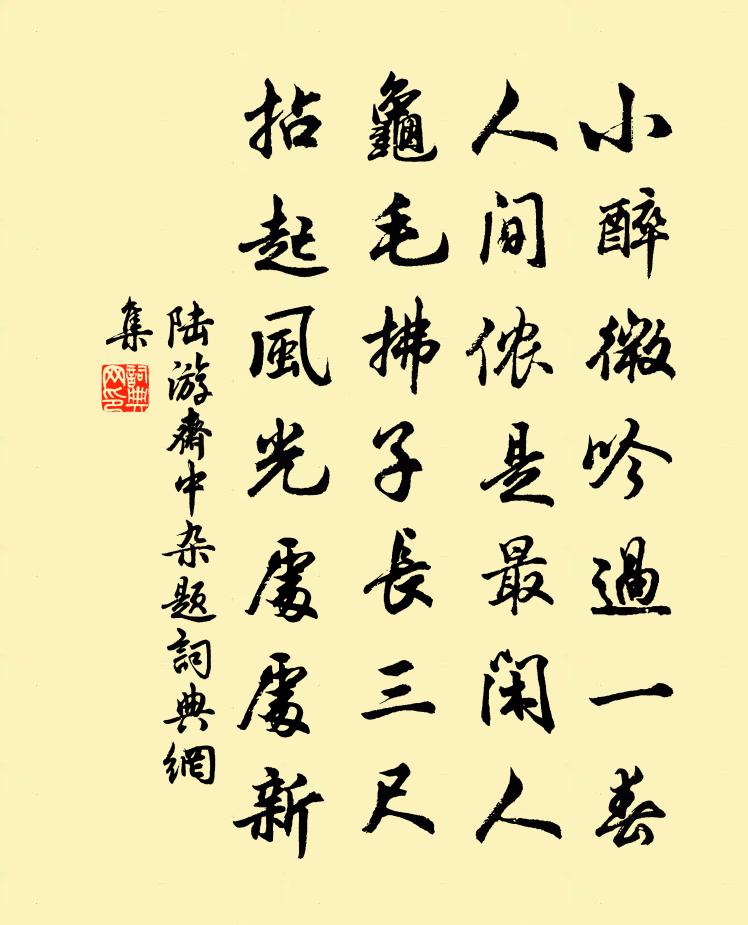 小醉微吟過一春
人間侬是最閑人
龜毛拂子長三尺
拈起風光處處新
陆游齋中杂题詞典網
集
詞典
网印